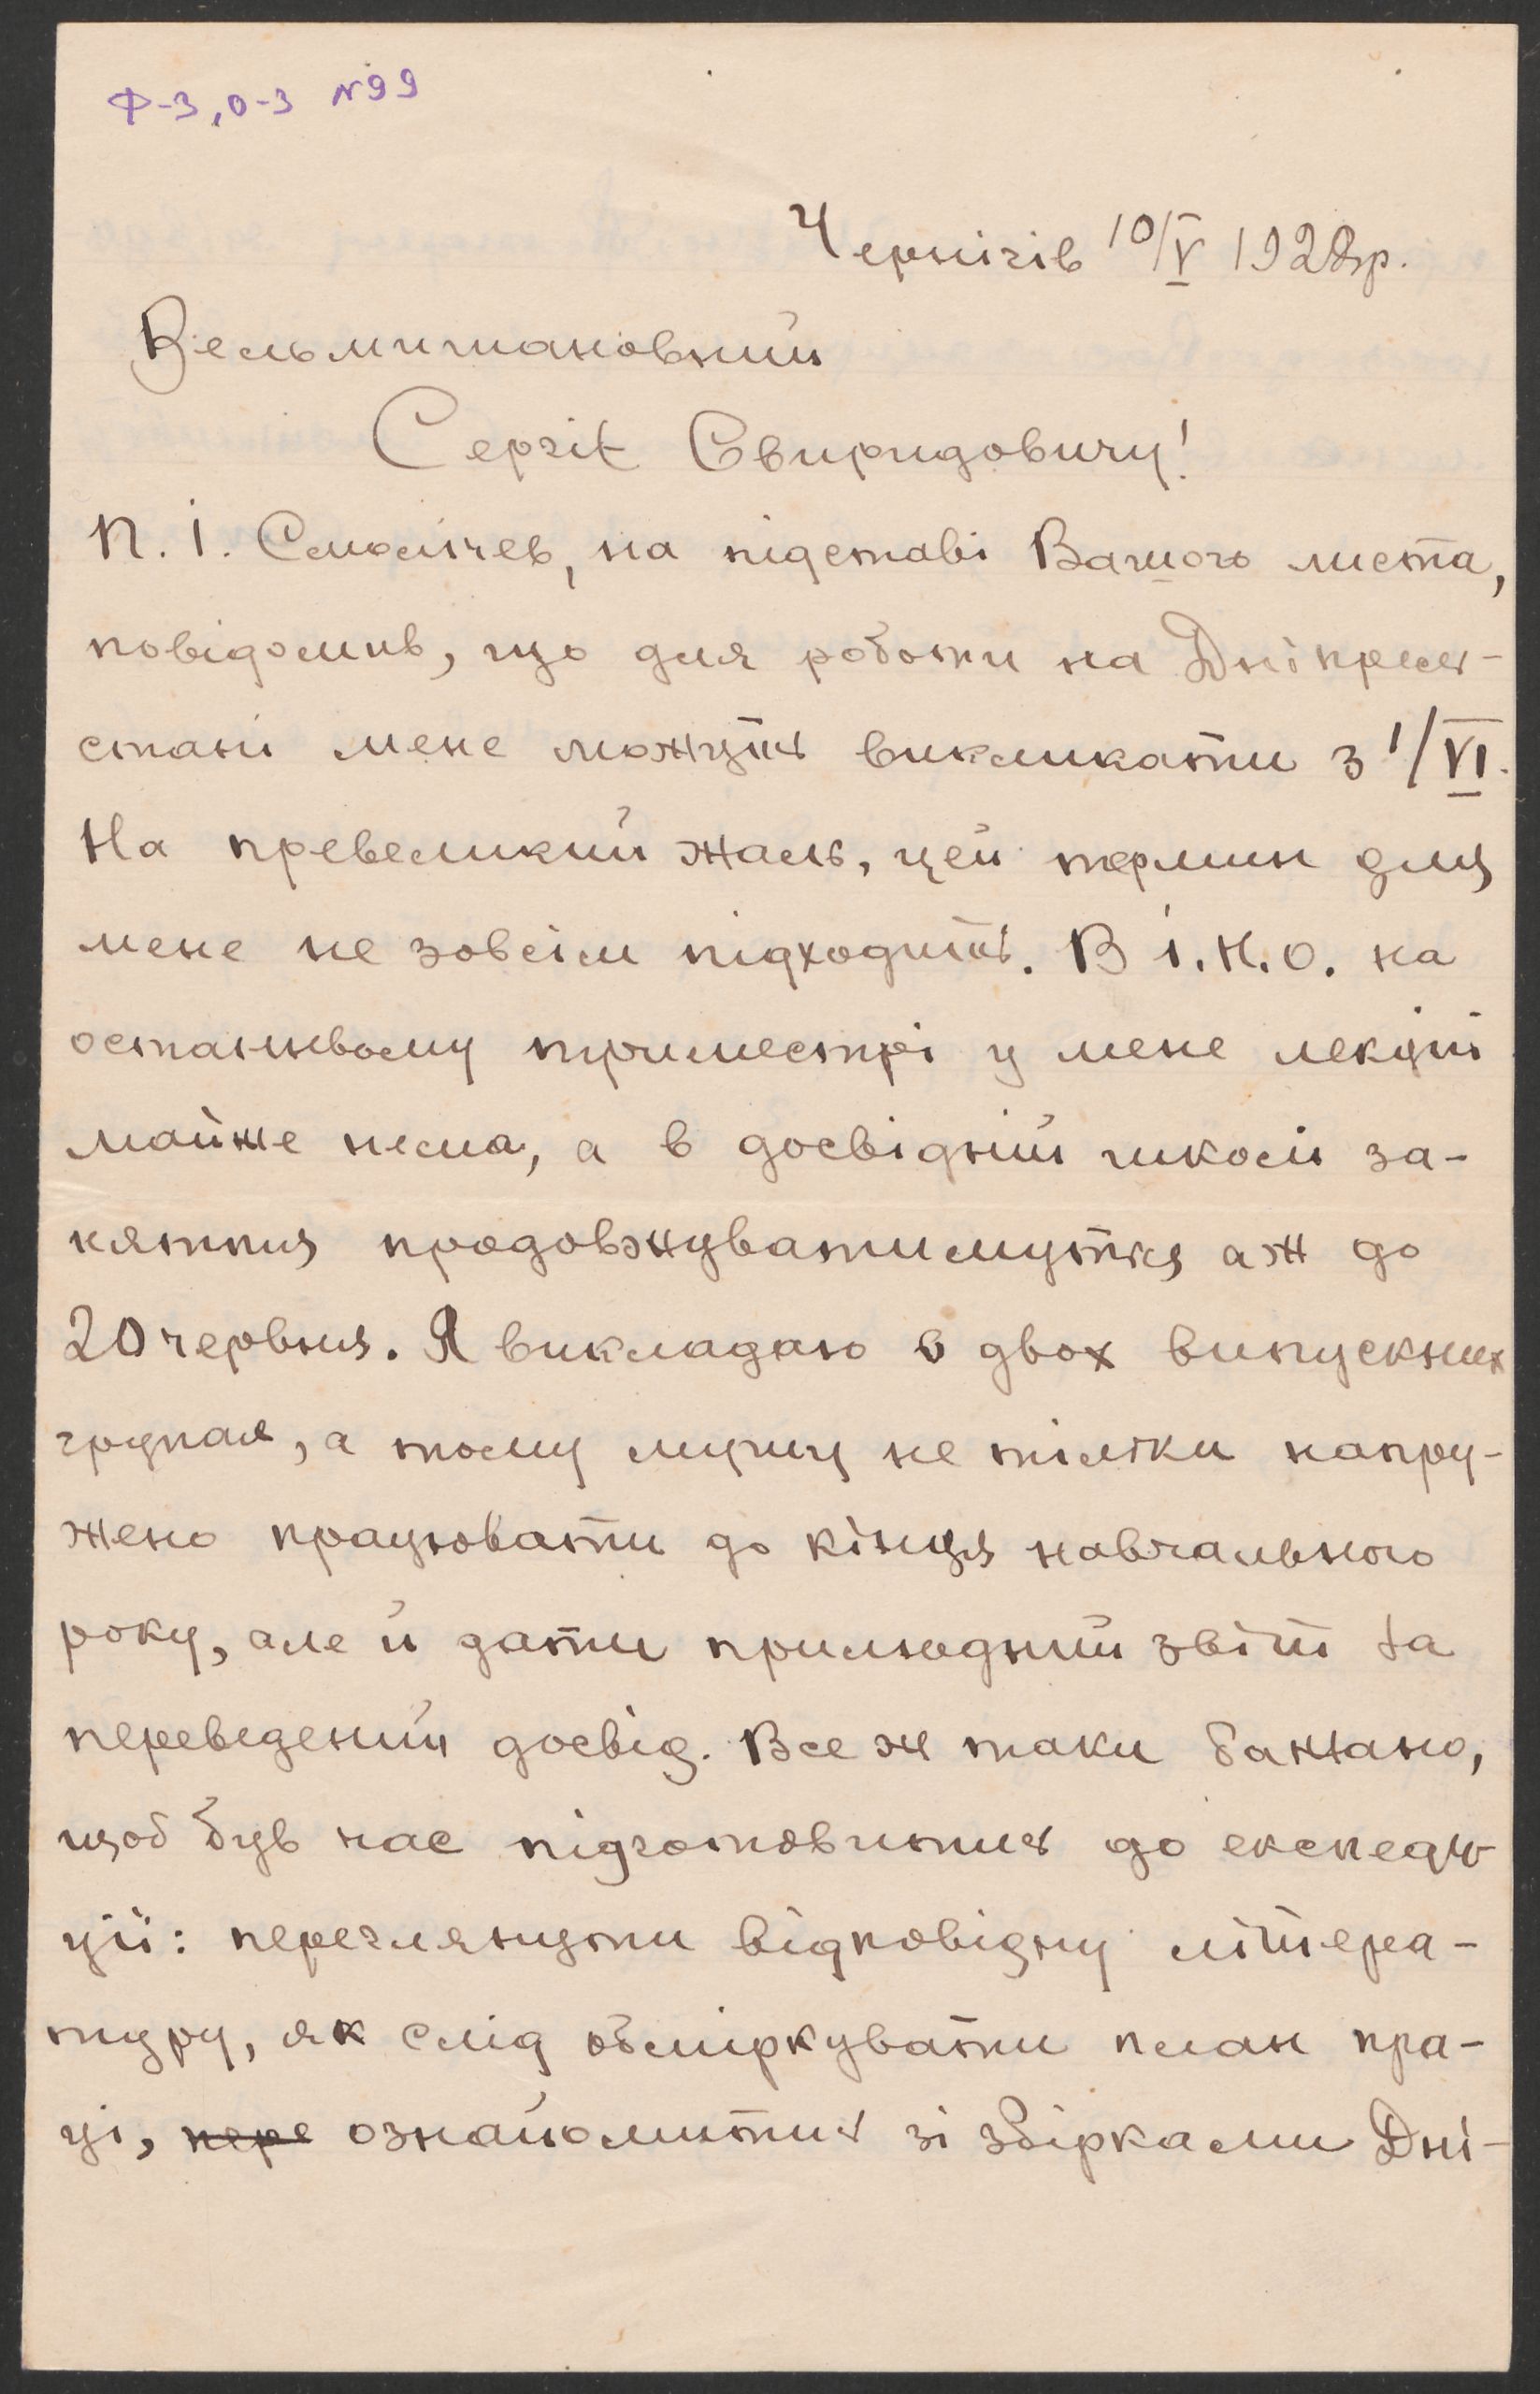 Ф-3, о-3 №99
Чернігів 10/V 1928р.
Вельмишановний
Сергію Свиридовичу!
П. І. Смолічев, на підставі Вашого листа,
повідомив, що для роботи на Дніпрель-
стані мене можуть викликати з 1/VI.
На превеликий жаль, цей термин для
мене не зовсім підходить. В І.Н.О. на
останньому триместрі у мене лекцій
майже нема, а в досвідній школі за-
няття продовжуватимуться аж до
20 червня. Я викладаю в двох випускних
групах, а тому мушу не тільки напру-
жено працювати до кінця навчального
року, але й дати прилюдний звіт за
переведений досвід. Все ж таки бажано,
щоб був час підготовитись до експеди-
ції: переглянути відповідну літера-
туру, як слід обміркувати план пра-
ці, пере ознайомитись зі збірками Дні-